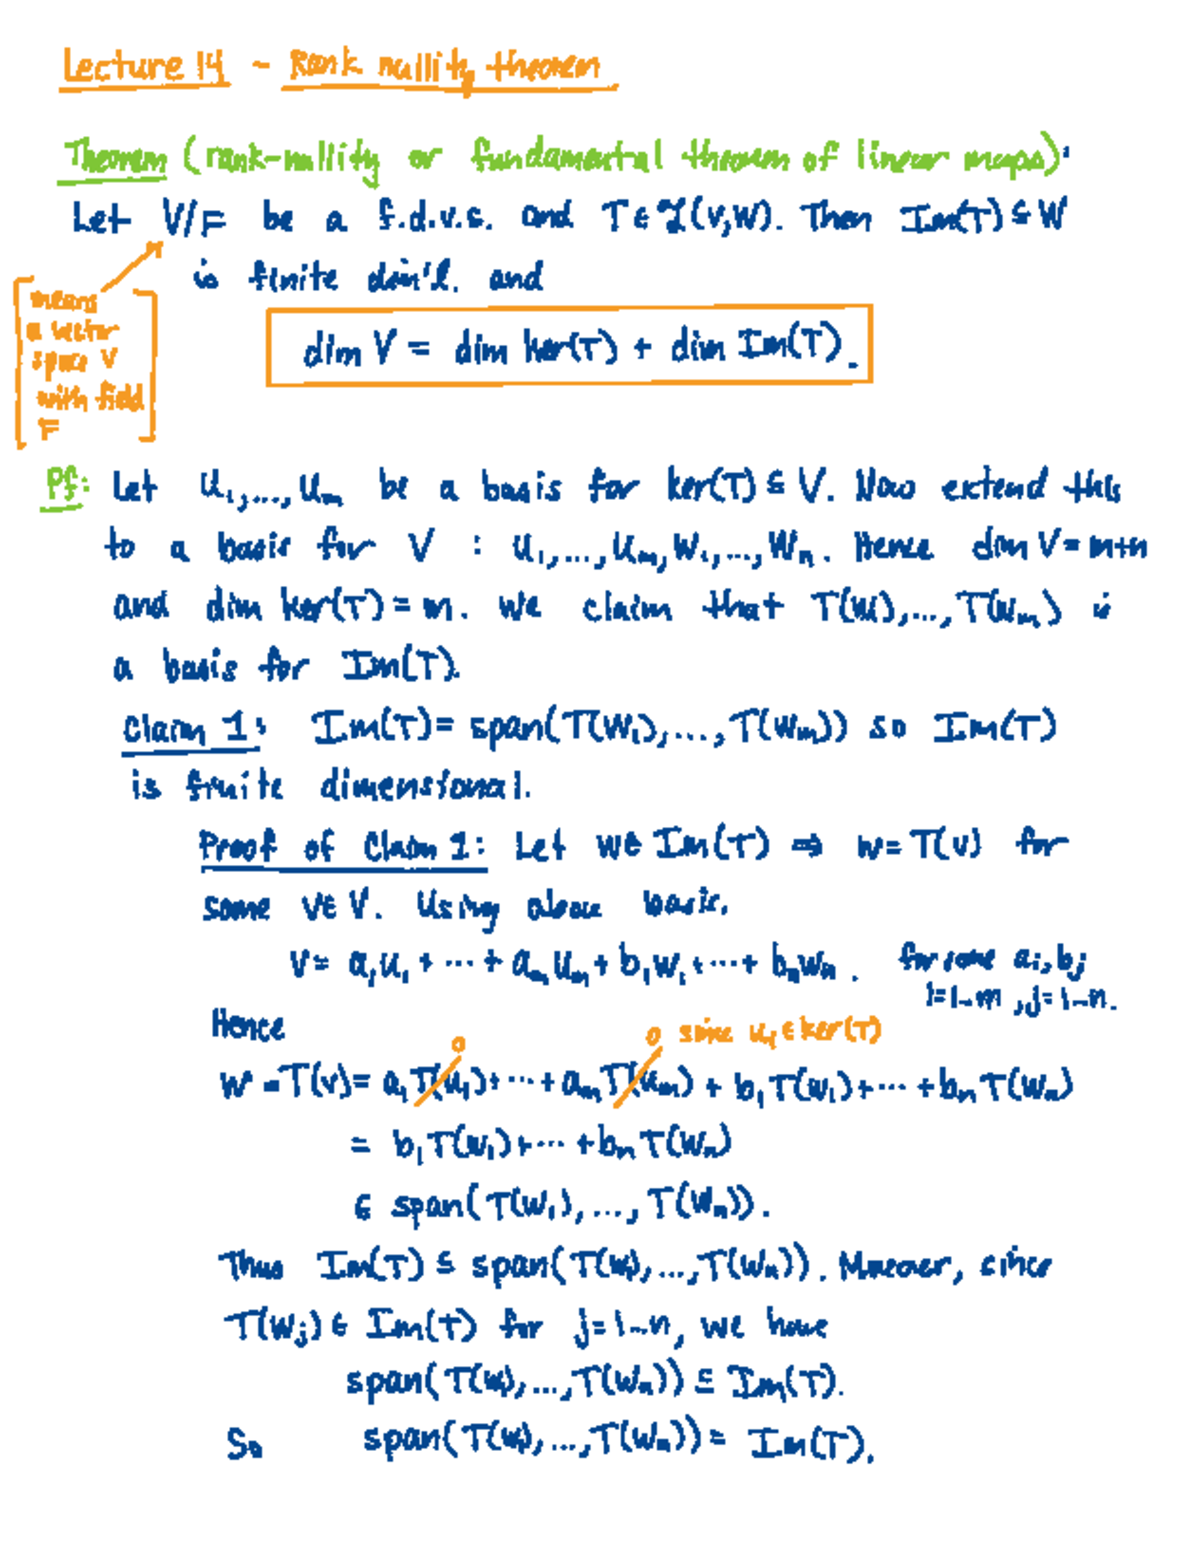 Lecture 14 - Rank nullity theorem
Theorem (rank-nullity or fundamental theorem of linear maps):
Let V/F be a f.d.v.s. and T ∈ L(V,W). Then Im(T) ⊆ W
is finite dim'l. and
[means
a vector
space V
with field
F]
dim V = dim ker(T) + dim Im(T).
Pf: Let u₁,...,uₘ be a basis for ker(T) ⊆ V. Now extend this
to a basis for V : u₁,...,uₘ,w₁,...,wₙ. Hence dim V = m+n
and dim ker(T) = m. We claim that T(w₁),...,T(wₘ) is
a basis for Im(T).
Claim 1: Im(T) = span(T(w₁),...,T(wₘ)) so Im(T)
is finite dimensional.
Proof of Claim 1: Let w ∈ Im(T) ⇒ w = T(v) for
some v ∈ V. Using above basis,
v = a₁u₁ + ··· + aₘuₘ + b₁w₁ + ··· + bₙwₙ. for some aᵢ, bⱼ
i=1-m, j=1-n.
Hence
0 0 since uᵢ ∈ ker(T)
w = T(v) = a₁T(u₁) + ··· + aₘT(uₘ) + b₁T(w₁) + ··· + bₙT(wₙ)
= b₁T(w₁) + ··· + bₙT(wₙ)
∈ span(T(w₁),...,T(wₙ)).
Thus Im(T) ⊆ span(T(w₁),...,T(wₙ)). Moreover, since
T(wⱼ) ∈ Im(T) for j=1-n, we have
span(T(w₁),...,T(wₙ)) ⊆ Im(T).
So span(T(w₁),...,T(wₙ)) = Im(T).